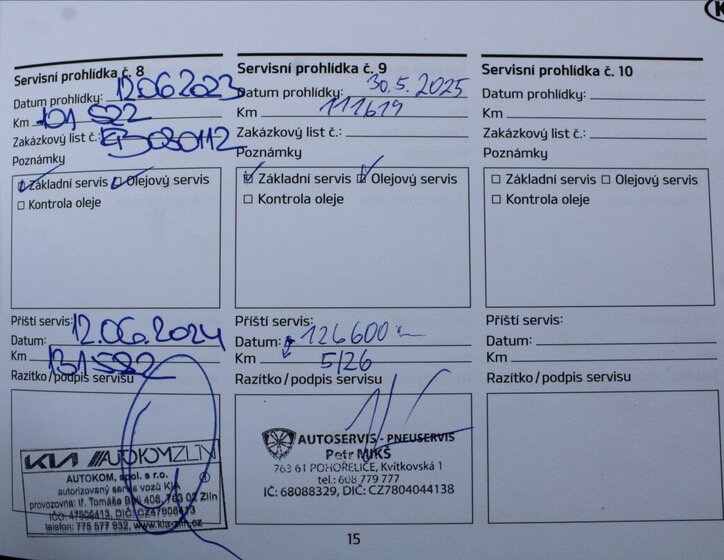 Servisní prohlídka č. 8
Datum prohlídky: 12.06.2023
Km 101 522
Zakázkový list č.:
Poznámky
Základní servis Olejový servis
Kontrola oleje
Příští servis:
Datum: 12.06.2024
Km 131 522
Razítko/podpis servisu
KIA AUTOKOM ZLÍN
AUTOKOM, spol. s r.o.
autorizovaný servis vozů KIA
provozovna: tř. Tomáše Bati 408, 763 02 Zlín
IČO: 47906413, DIČ: CZ47906413
telefon: 775 577 932, www.kia-zlin.cz
Servisní prohlídka č. 9
Datum prohlídky: 30.5.2025
Km 111619
Zakázkový list č.:
Poznámky
Základní servis Olejový servis
Kontrola oleje
Příští servis:
Datum: 126600
Km 5/26
Razítko/podpis servisu
AUTOSERVIS - PNEUSERVIS
Petr MIKŠ
763 61 POHOŘELICE, Kvítkovická 1
tel.: 608 779 777
IČ: 68088329, DIČ: CZ7804044138
Servisní prohlídka č. 10
Datum prohlídky:
Km
Zakázkový list č.:
Poznámky
Základní servis Olejový servis
Kontrola oleje
Příští servis:
Datum:
Km
Razítko/podpis servisu
15